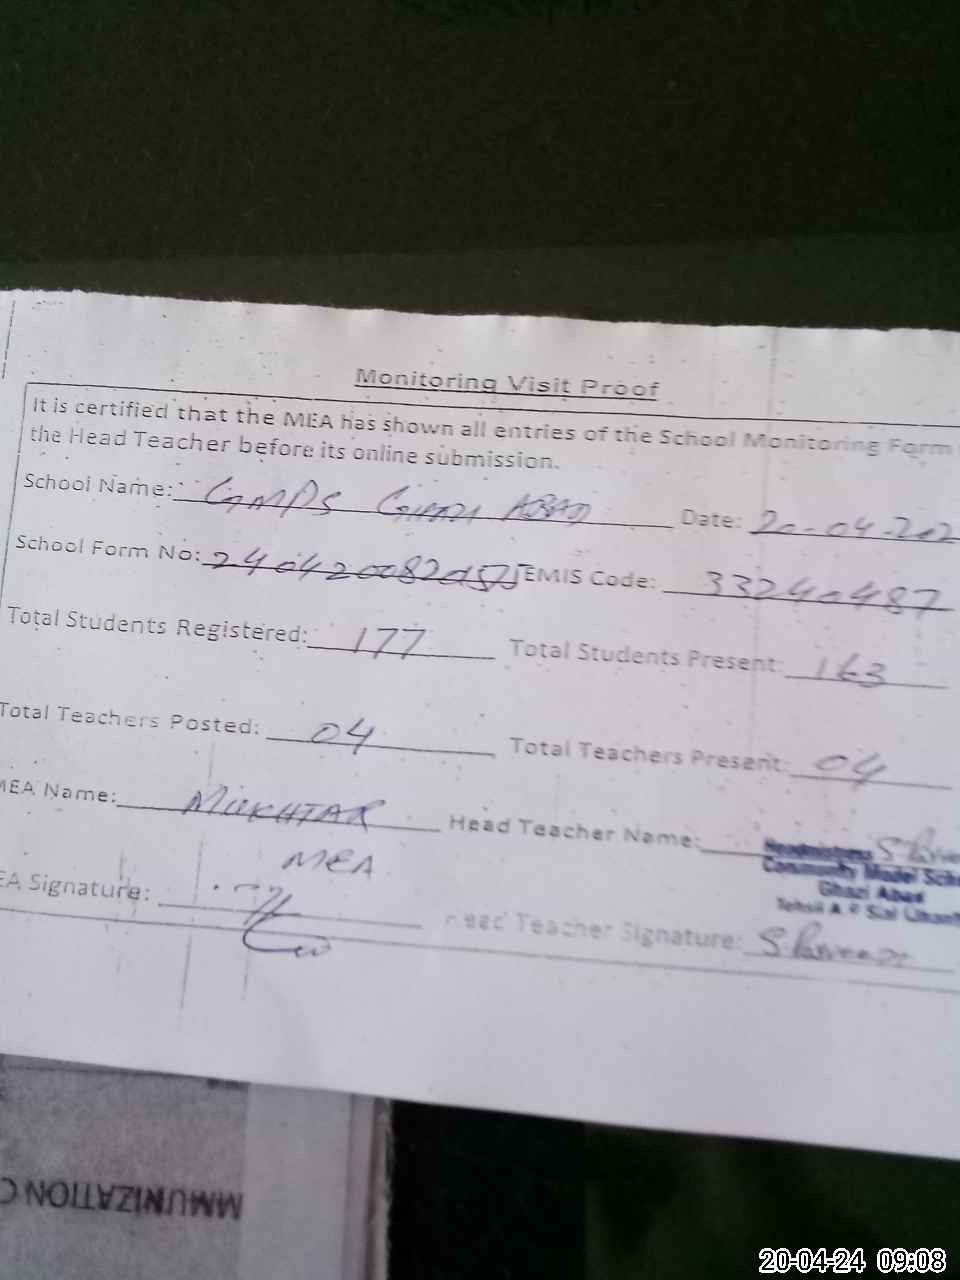 Monitoring Visit Proof
It is certified that the MEA has shown all entries of the School Monitoring Form
the Head Teacher before its online submission.
School Name: GMPS Ghazi ABAD Date: 20-04-202
School Form No: EMIS Code: 33240487
Total Students Registered: 177 Total Students Present: 163
Total Teachers Posted: 04 Total Teachers Present: 04
MEA Name: MUKHTAR Head Teacher Name:
MEA
Headmistress
Community Model Scho
Ghazi Abad
Tehsil A P Sial
EA Signature: Head Teacher Signature: S Parveen
MMUNIZATION C
20-04-24 09:08